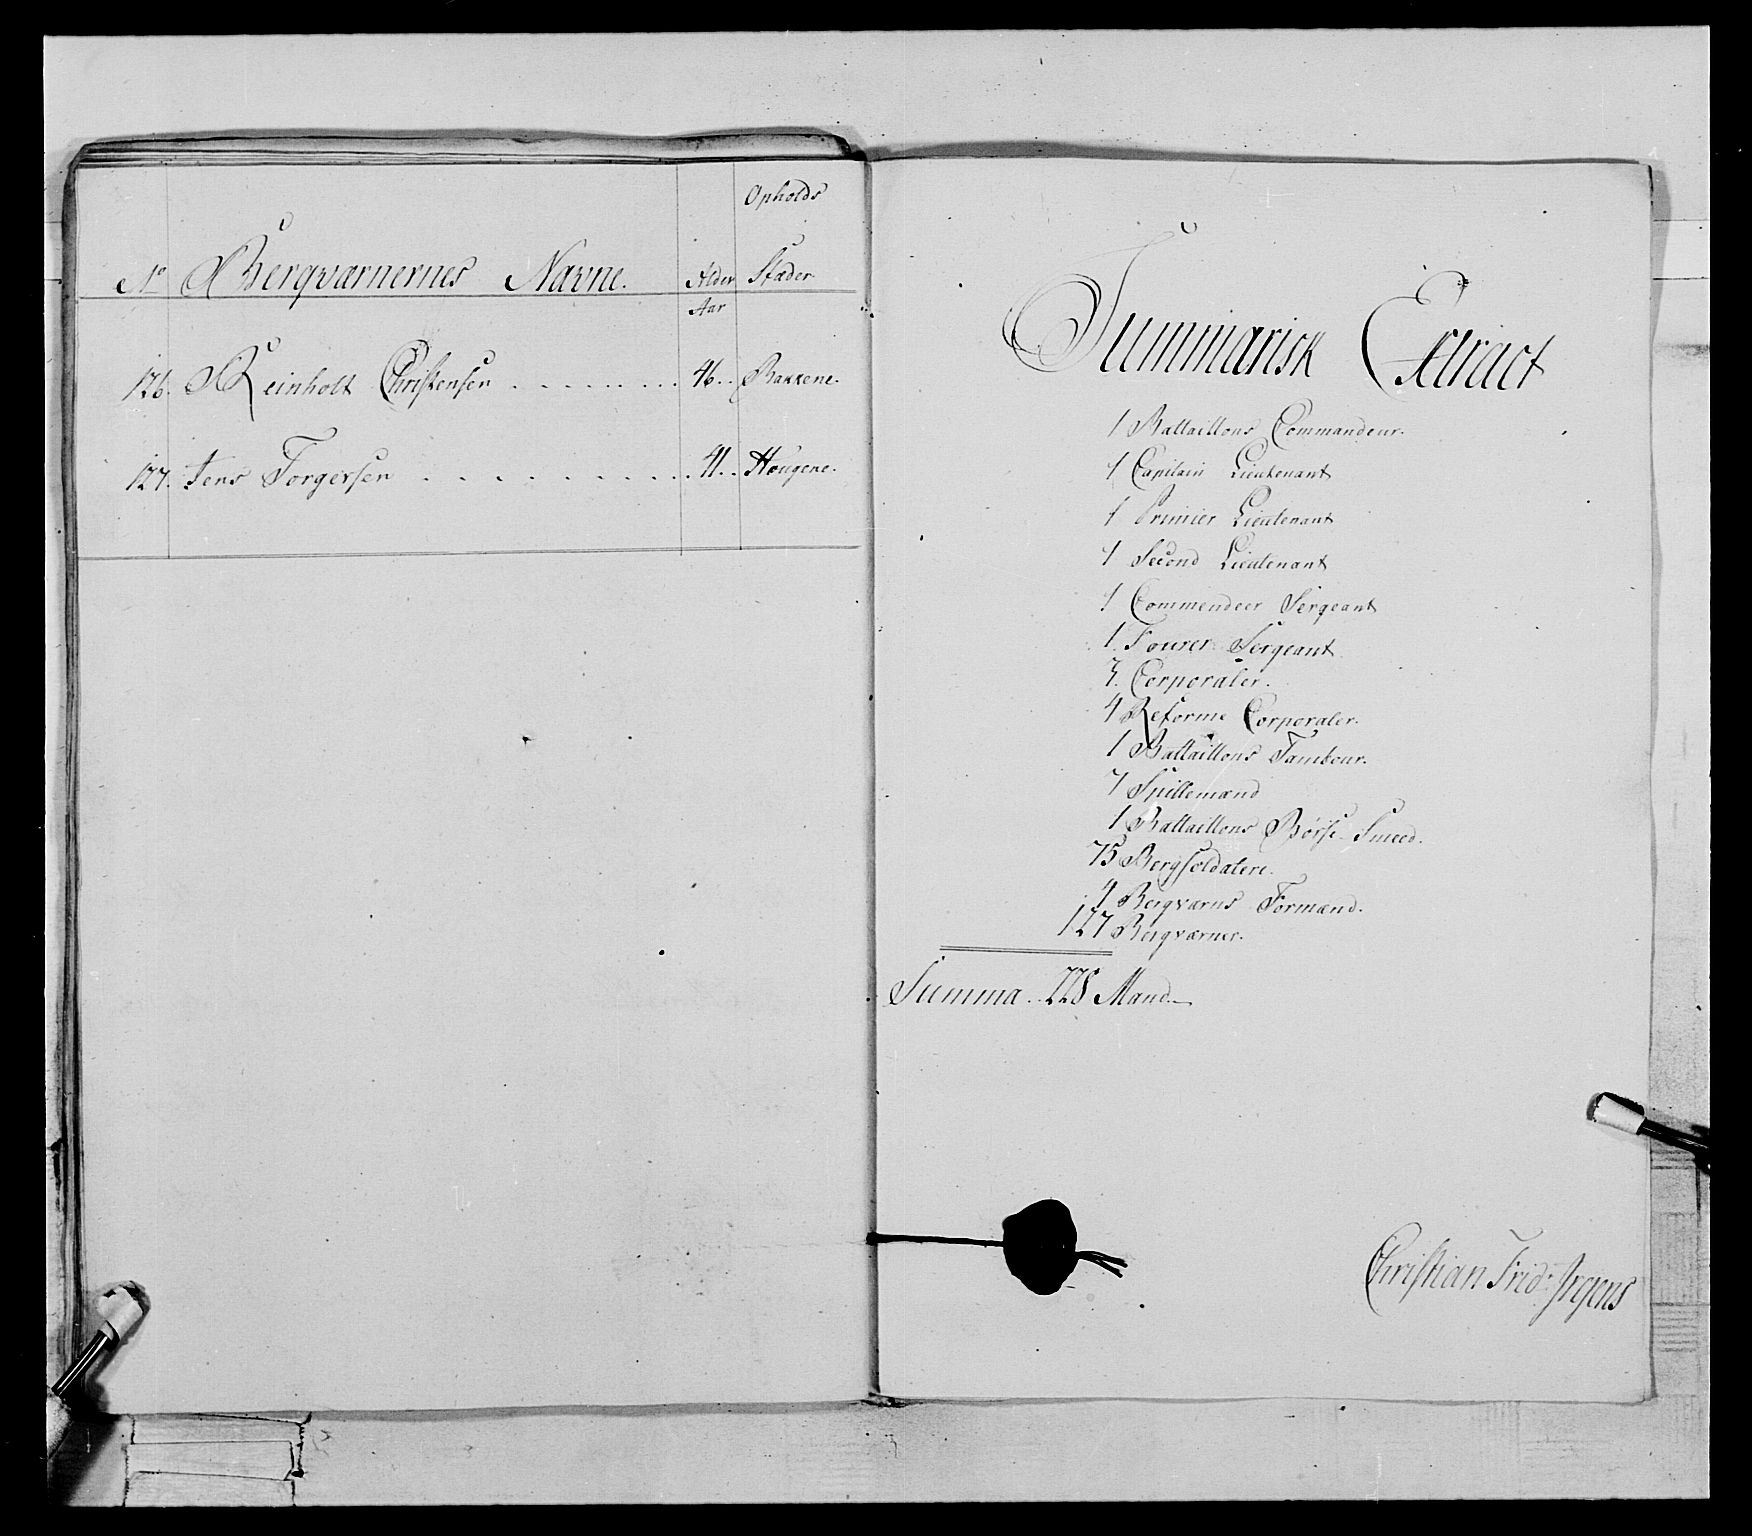 Opholds
No Bergværnernes Navne. Alder Stæder
Aar
126. Reinholt Christensen . . . . . . . . 46. . Bakkene.
127. Jens Torgersen . . . . . . . . . . 41. . Hougene.
Summarisk Extract
1 Battaillons Commandeur.
1 Capitain Lieutenant
1 Primier Lieutenant
1 Second Lieutenant
1 Commendeer Sergeant
1. Fourer Sergeant
3. Corporaler.
4 Reforme Corporaler.
1 Battaillons Tambour.
7 Spillemænd
1 Battaillons Börse-Smeed.
75 Bergsoldatere.
4 Bergværns Formænd.
127 Bergværner.
Summa. 228 Mand.
Christian Frid: Irgens